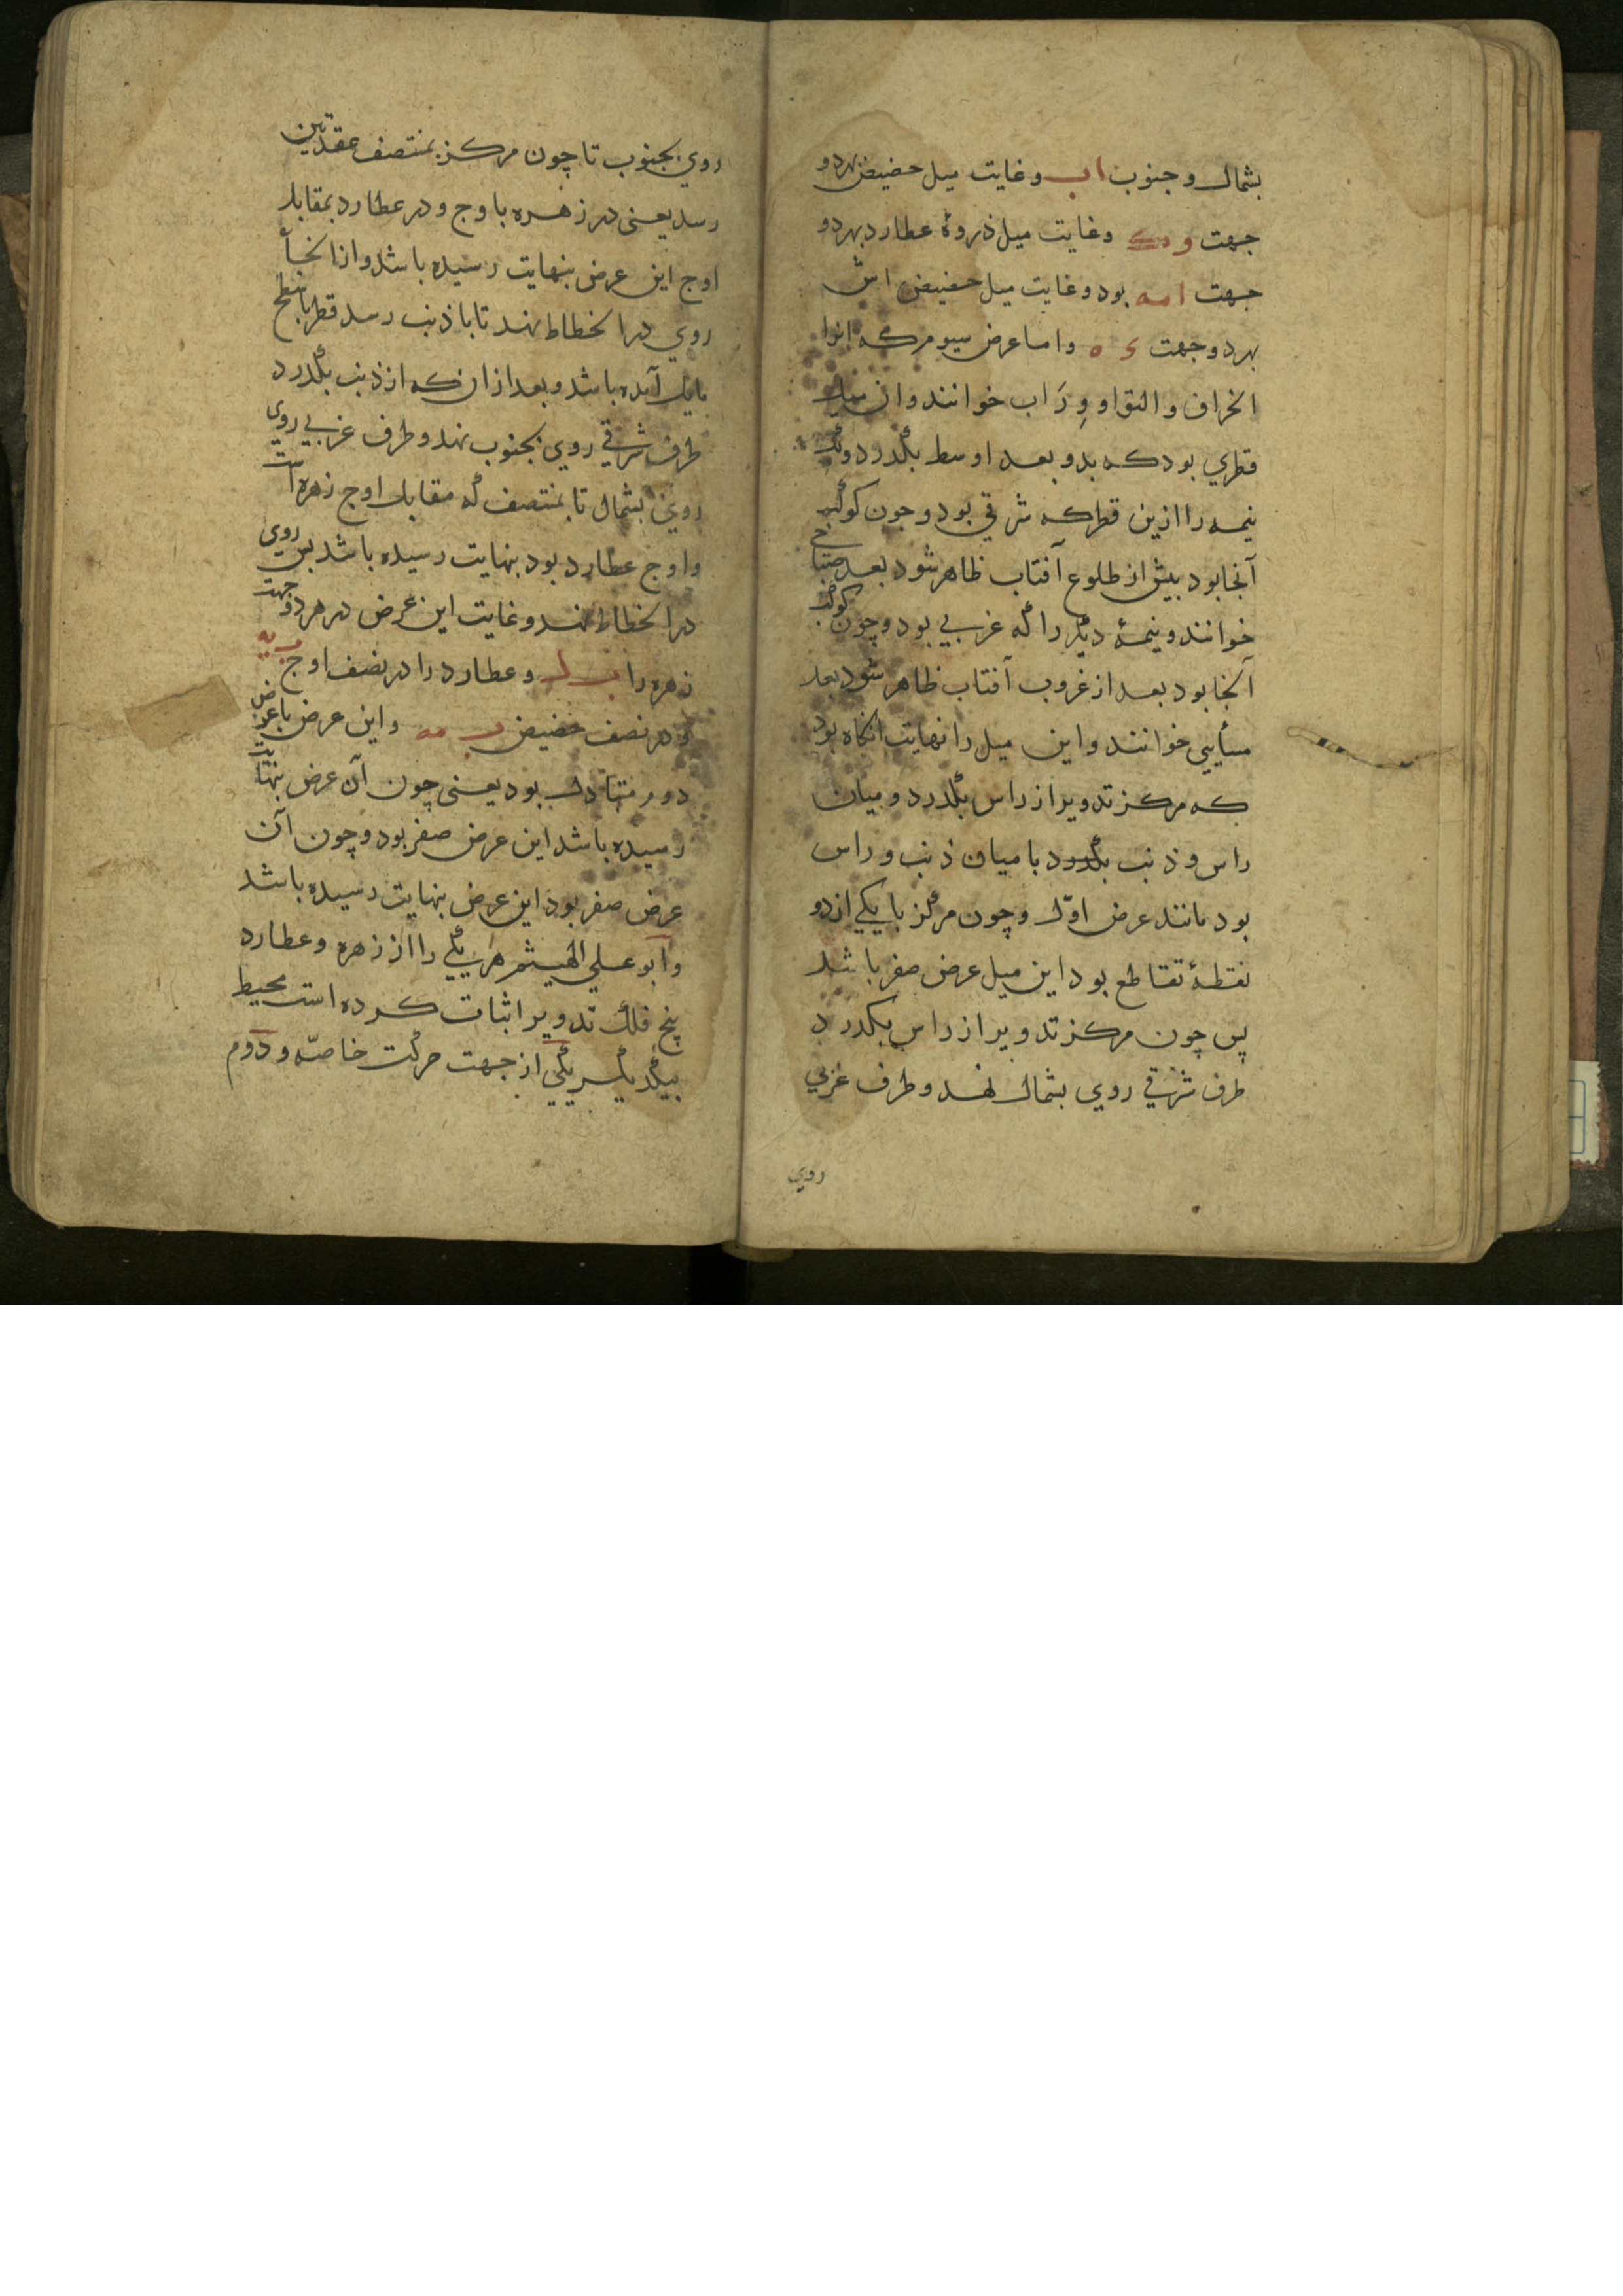 بشمال و جنوب اب و غایت میل حضیض بهر دو
جهت و کک و غایت میل ذروهٔ عطارد بهر دو
جهت ا مه بود و غایت میل حضیض اش
بهر دو جهت و اما عرض سیوم که انرا
انحراف و التوا و وِرَاب خوانند و ان میل
قطری بود که بدو بعد اوسط بگذرد و یک
نیمه را ازین قطر که شرقی بود و جون کوکب
آنجا بود بیش از طلوع آفتاب ظاهر شود بعد صباحی
خوانند و نیمهٔ دیگر را که غربی بود و چون کوکب
آنجا بود بعد از غروب آفتاب ظاهر شود بعد
مسأیی خوانند و این میل را نهایت انکاه بود
که مرکز تدویر از راس بگذرد و میان
راس و ذنب بگذرد با میان ذنب و راس
بود مانند عرض اوّل و چون مرکز با یکی از دو
نقطهٔ تقاطع بود این میل عرض صفر باشد
پس چون مرکز تدویر از راس بکذرد
طرف شرقی روی بشمال نهد و طرف غربی
روی
روی بجنوب تا چون مرکز بمنتصف عقدتین
رسد یعنی در زهره باوج و در عطارد بمقابله
اوج این عرض بنهایت رسیده باشد و از انجأ
روی در انحطاط نهد تا با ذنب رسد قطر باسطح
مایل آمده باشد و بعد از ان که از ذنب بگذرد
طرف شرقی روی بجنوب نهد و طرف غربی روی
روی بشمال تا بمنتصف که مقابل اوج زهره است
و اوج عطارد بود بنهایت رسیده باشد بس روی
در انحطاط نهد و غایت این عرض در هر دو جهت
زهره را ب ل و عطارد را در نصف اوج ب یه
و در نصف حضیض ب مه و این عرض با عرض
دور متبادل بود یعنی چون آن عرض بنهایت
رسیده باشد این عرض صفر بود و چون آن
عرض صفر بود این عرض بنهایت رسیده باشد
و ابو علی الهیثم هر یکی را از زهره و عطارد
پنج فلک تدویر اثبات کرده است محیط
بیکدیگر یکی از جهت حرکت خاصّه و دوم